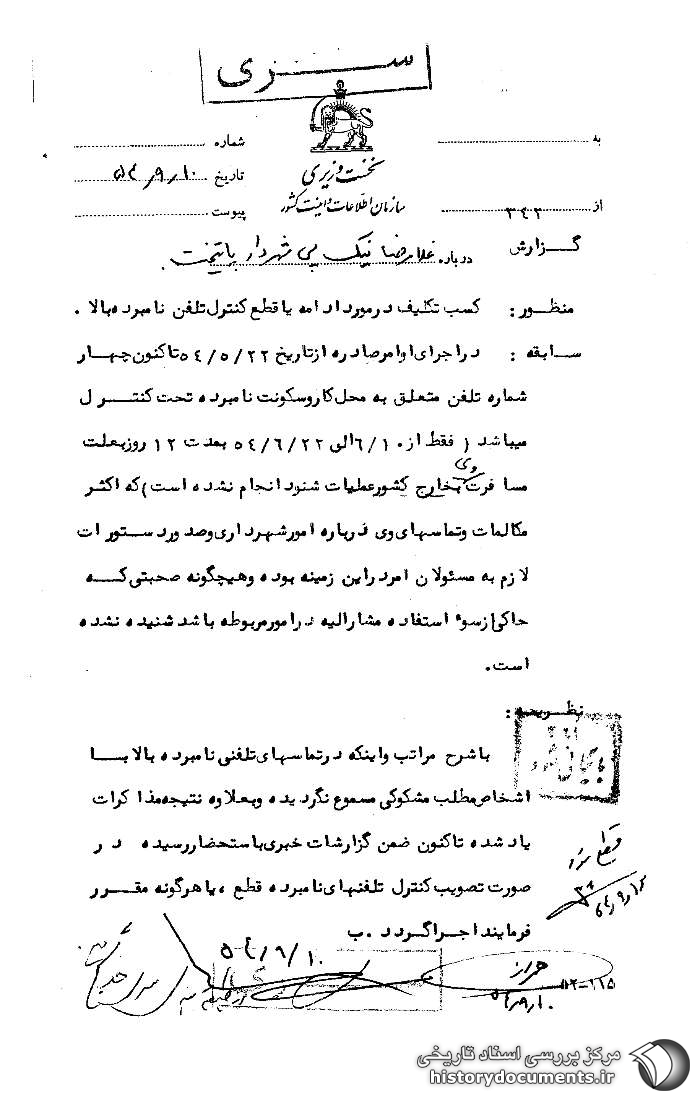 سری
به
شماره
نخست وزیری
تاریخ ۵۴/۹/۱۰
سازمان اطلاعات و امنیت کشور
از ۳۴۲
پیوست
گزارش درباره غلامرضا نیک پی شهردار پایتخت
منظور: کسب تکلیف در مورد ادامه یا قطع کنترل تلفن نامبرده بالا.
سابقه: در اجرای اوامر صادره از تاریخ ۵٤/۵/۲۲ تاکنون چهار
شماره تلفن متعلق به محل کار و سکونت نامبرده تحت کنترل
میباشد (فقط از ٦/۱۰ الی ۵٤/٦/۲۲ بمدت ۱۲ روز بعلت
مسافرت وی بخارج کشور عملیات شنود انجام نشده است) که اکثر
مکالمات و تماسهای وی درباره امور شهرداری و صدور دستورات
لازم به مسئولان امر در این زمینه بوده و هیچگونه صحبتی که
حاکی از سوء استفاده مشارالیه در امور مربوطه باشد شنیده نشده
است.
نظریه:
باشرح مراتب و اینکه در تماسهای تلفنی نامبرده بالا با
بایگانی شود
اشخاص مطلب مشکوکی مسموع نگردیده و بعلاوه نتیجه مذاکرات
یاد شده تاکنون ضمن گزارشات خبری باستحضار رسیده در
صورت تصویب کنترل تلفنهای نامبرده قطع، یا هرگونه مقرر
قطع شود
۵۴/۹/۱۲
فرمایند اجرا گردد. ب
۵٤/۹/۱۰
۵۴/۹/۱۰
۱۲-۱۱۵
مرکز بررسی اسناد تاریخی
historydocuments.ir